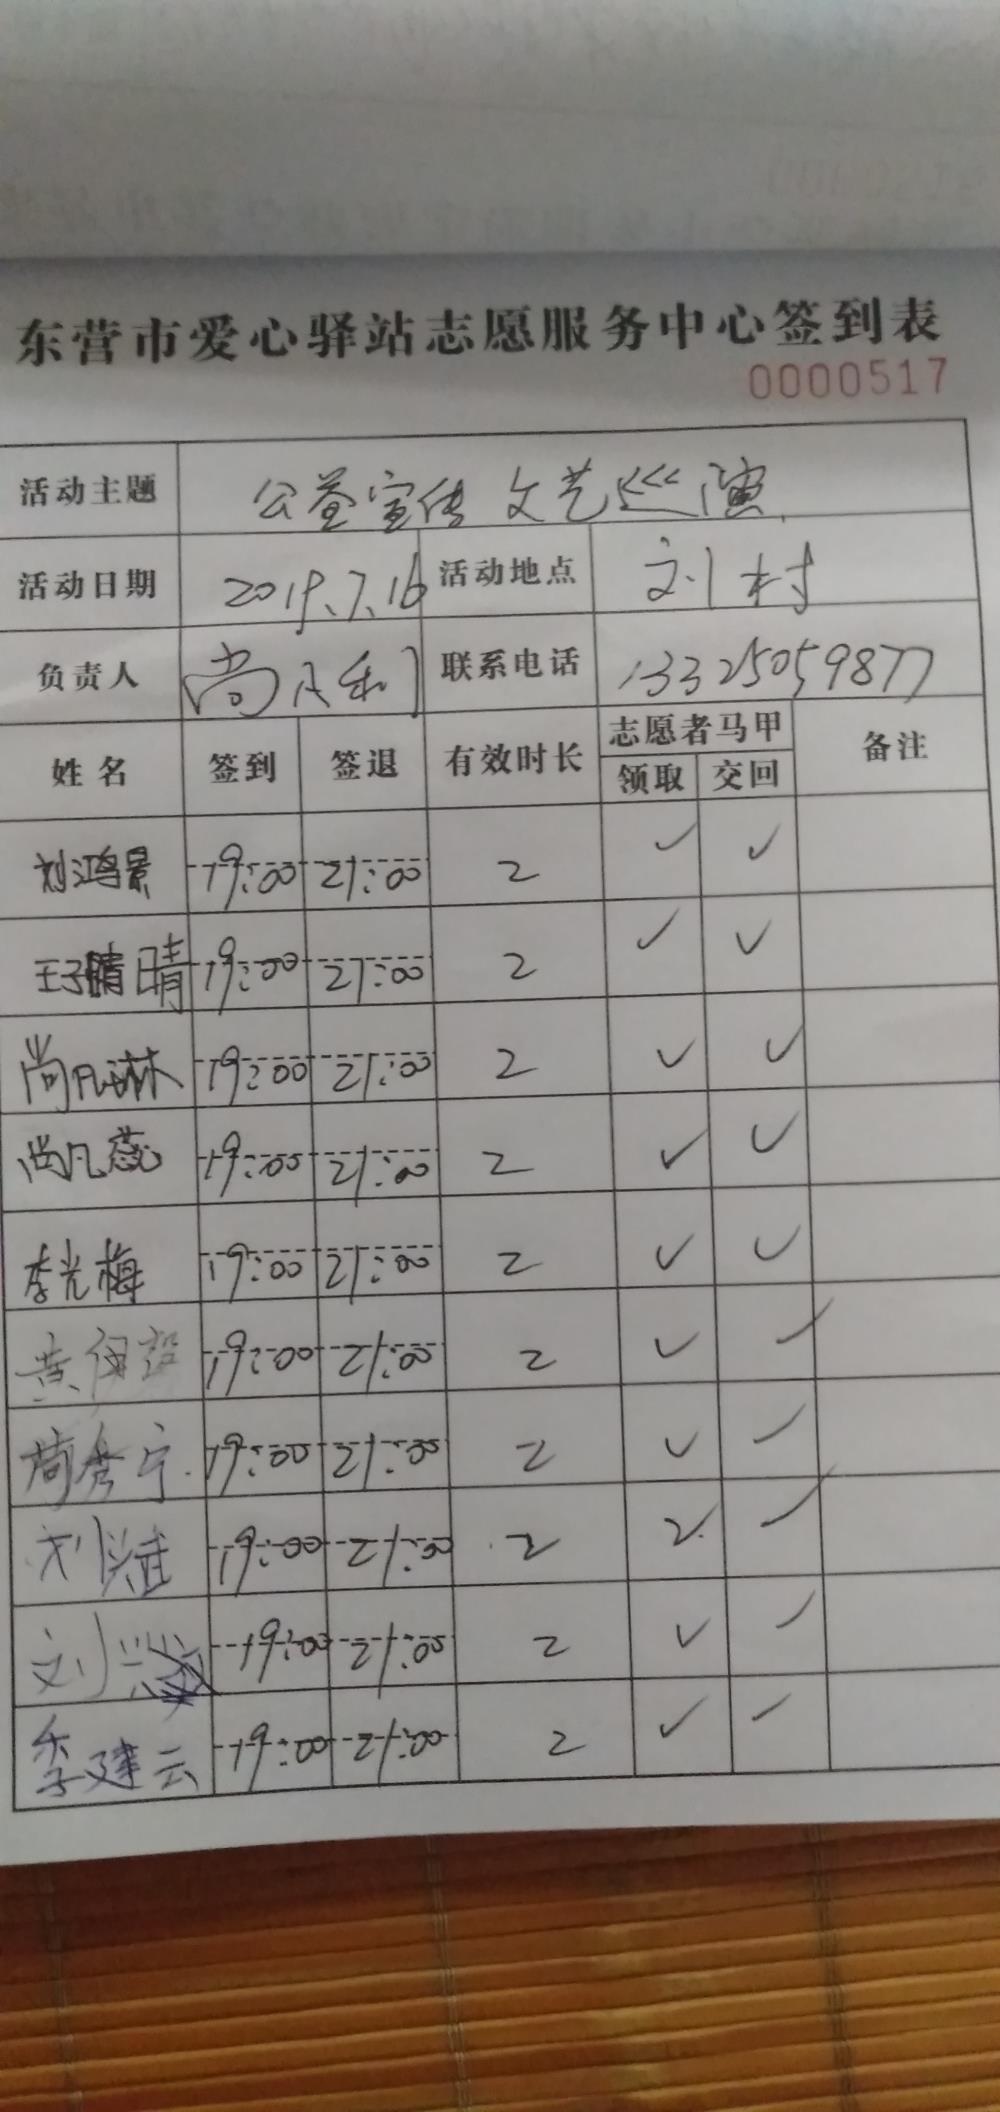 东营市爱心驿站志愿服务中心签到表
0000517
活动主题 公益宣传 文艺巡演
活动日期 2019.7.16 活动地点 刘村
负责人 尚凡利 联系电话 13325059877
姓名 签到 签退 有效时长 志愿者马甲 备注
领取 交回
刘鸿景 19:00 21:00 2 ✓ ✓
王子晴 晴 19:00 21:00 2 ✓ ✓
尚凡琳 19:00 21:00 2 ✓ ✓
尚凡蕊 19:00 21:00 2 ✓ ✓
李光梅 19:00 21:00 2 ✓ ✓
黄 19:00 21:00 2 ✓ ✓
秀宁 19:00 21:00 2 ✓ ✓
刘兴武 19:00 21:00 2 2 ✓
刘兴 19:00 21:00 2 ✓ ✓
李建云 19:00 21:00 2 ✓ ✓